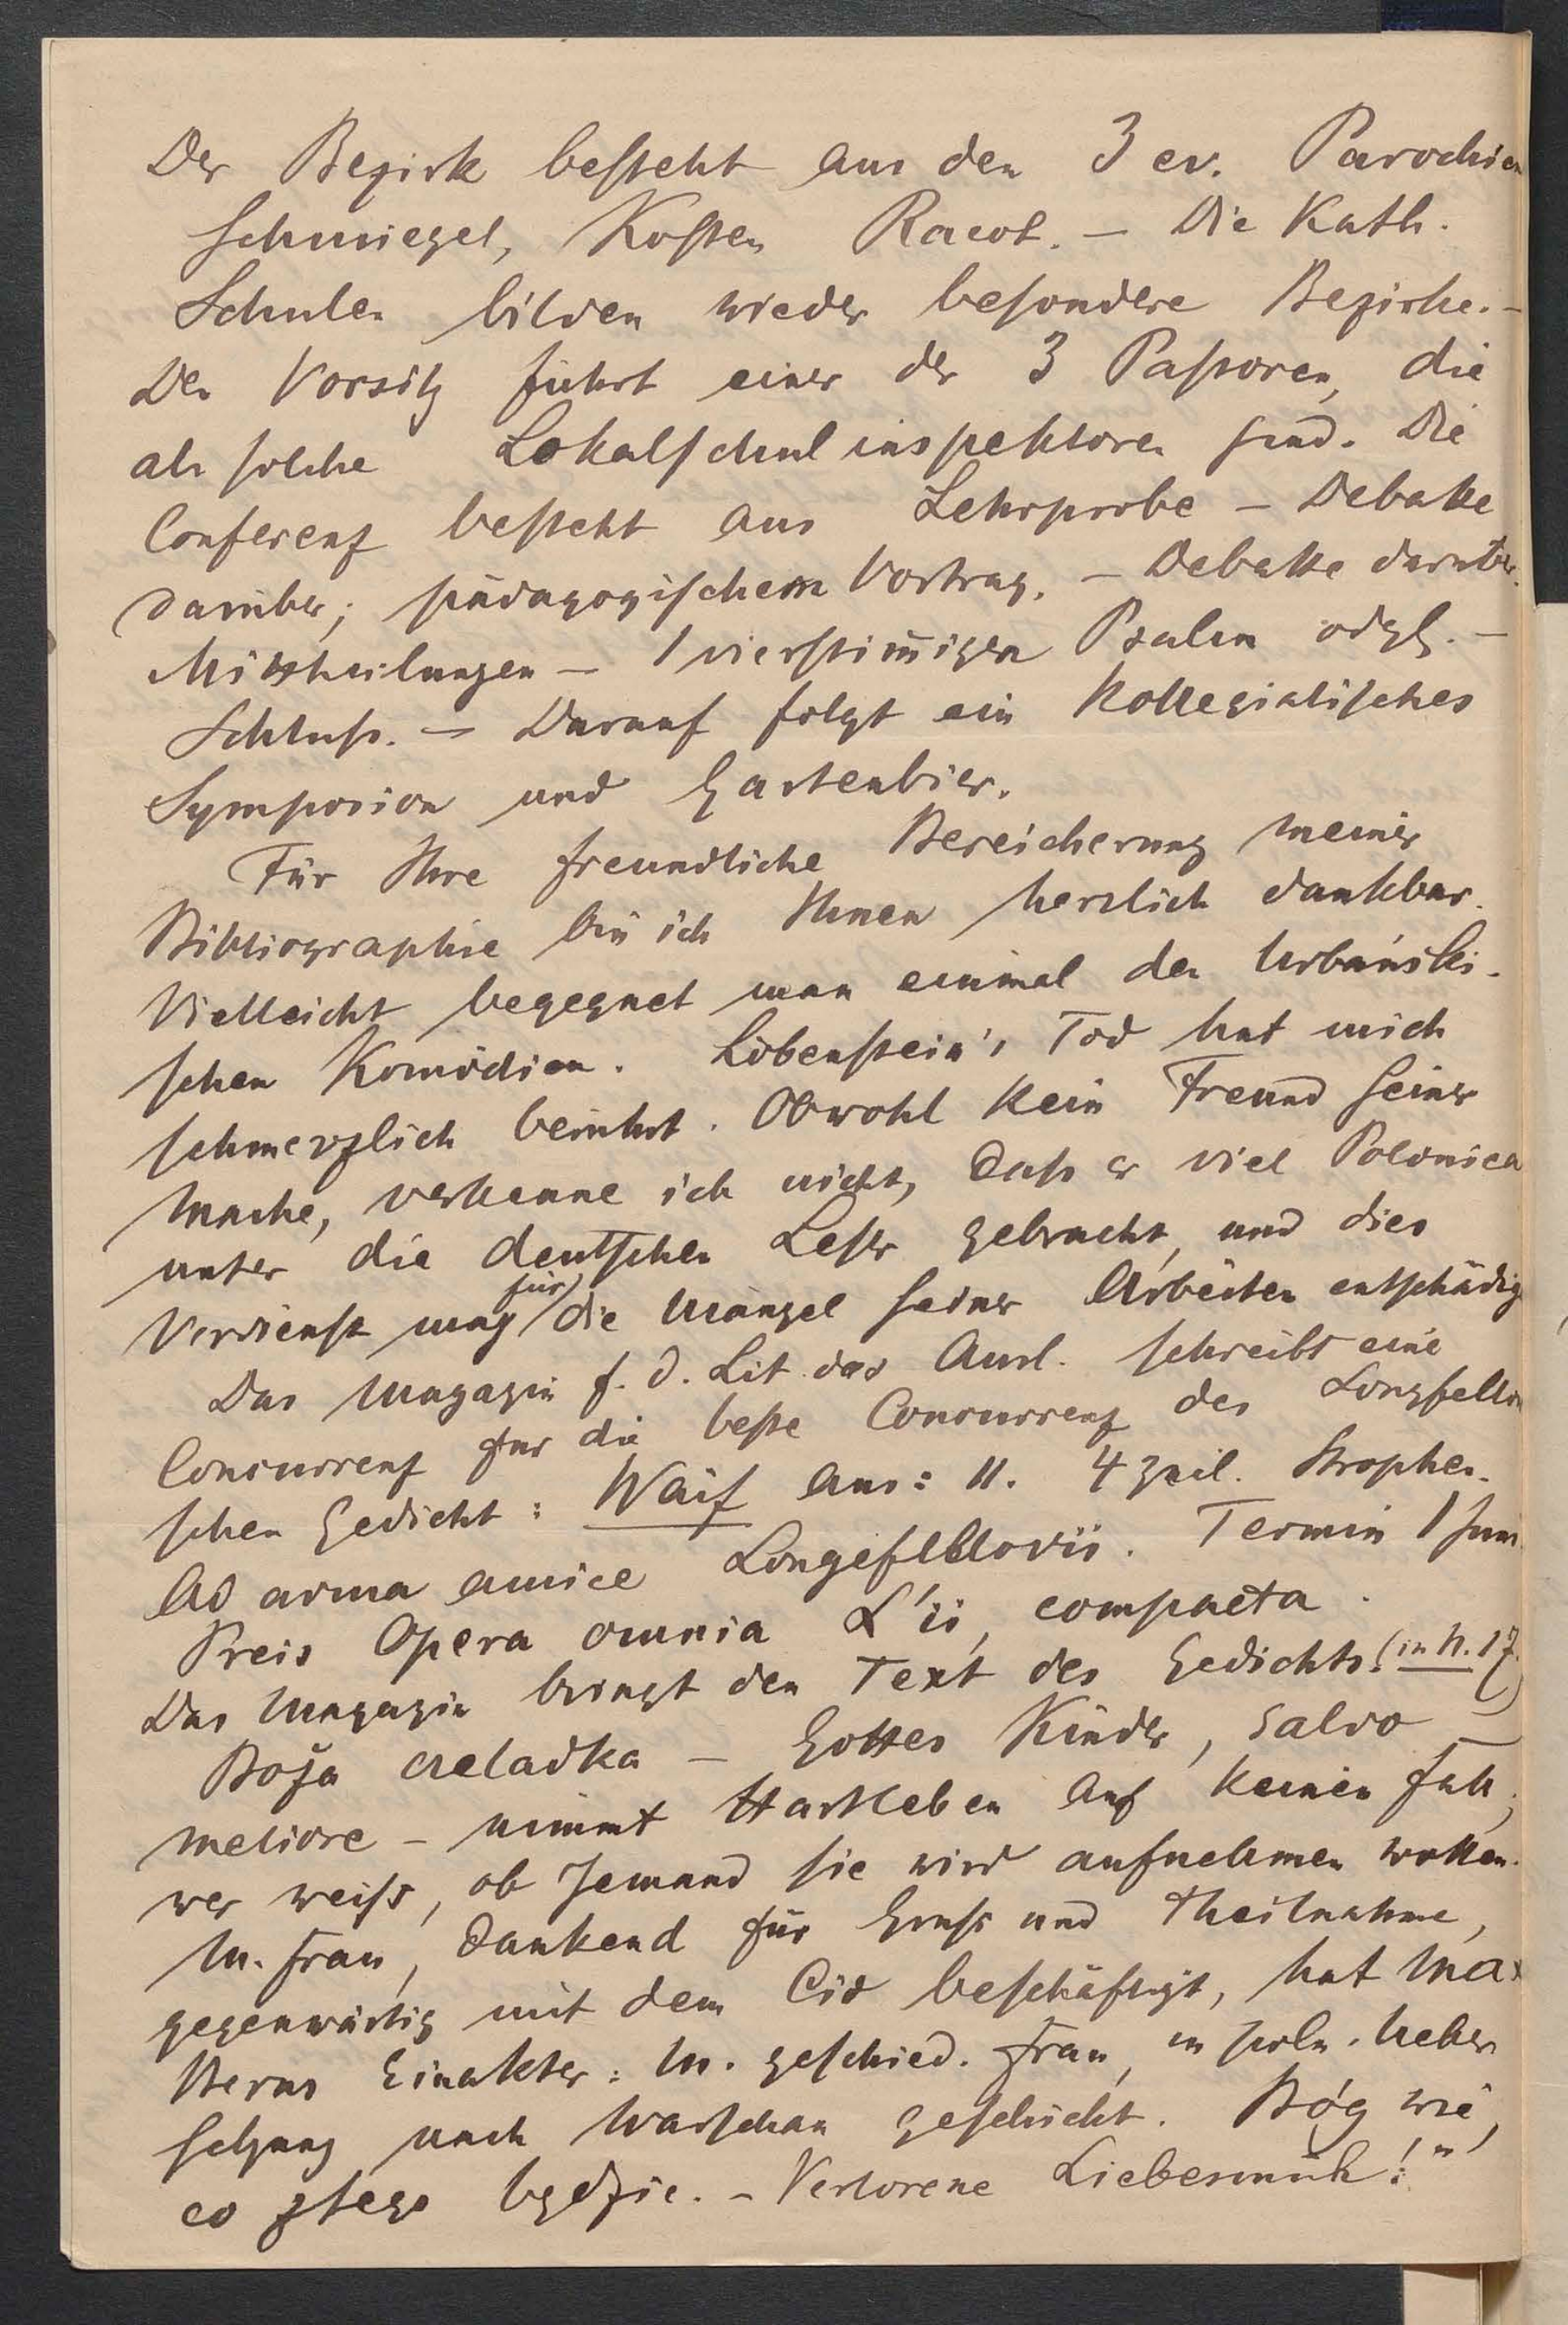 Der Bezirk besteht aus den 3 ev. Parochien
Schmiegel, Kosten Racot. – Die Kath.
Schulen bilden wieder besondere Bezirke. –
Den Vorsitz führt einer der 3 Pastoren, die
als solche Lokalschulinspektoren sind. Die
Conferenz besteht aus Lehrprobe – Debatte
darüber; pädagogischem Vortrag. – Debatte darüber.
Mittheilungen – 1 vierstim̄igen Psalm odgl. –
Schluss. – Darauf folgt ein kollegialisches
Symposion und Gartenbier.
Für Ihre freundliche Bereicherung meiner
Bibliographie bin ich Ihnen herzlich dankbar.
Vielleicht begegnet man einmal den Urbański-
schen Komödien. Löbenstein's Tod hat mich
schmerzlich berührt. Obwohl kein Freund seiner
Mache, verkenne ich nicht, dass er viel Polonica
unter die deutschen Leser gebracht, und dies
Verdienst mag für die Mängel seiner Arbeiten entschädig
Das Magazin f. d. Lit. des Ausl. schreibt eine
Concurrenz für die beste Concurrenz des Longfellow
schen Gedicht: Waif aus: 11. 4 zeil. Strophen.
Ad arma amice Longefellovii. Termin 1 Juni
Preis Opera omnia L'ii, compacta.
Das Magazin bringt den Text des Gedichts. (in N. 17.)
Boża czeladka – Gottes Kinder, salvo
meliore – nimmt Hartleben auf keinen Fall,
wer weiss, ob Jemand sie wird aufnehmen wollen.
M. Frau, dankend für Gruss und Theilnahme,
gegenwärtig mit dem Cid beschäftigt, hat Max
Berns Einakter: M. geschied. Frau, in poln. Ueber
setzung nach Warschau geschickt. Bóg wie,
co z tego będzie. – Verlorene Liebesmüh!"